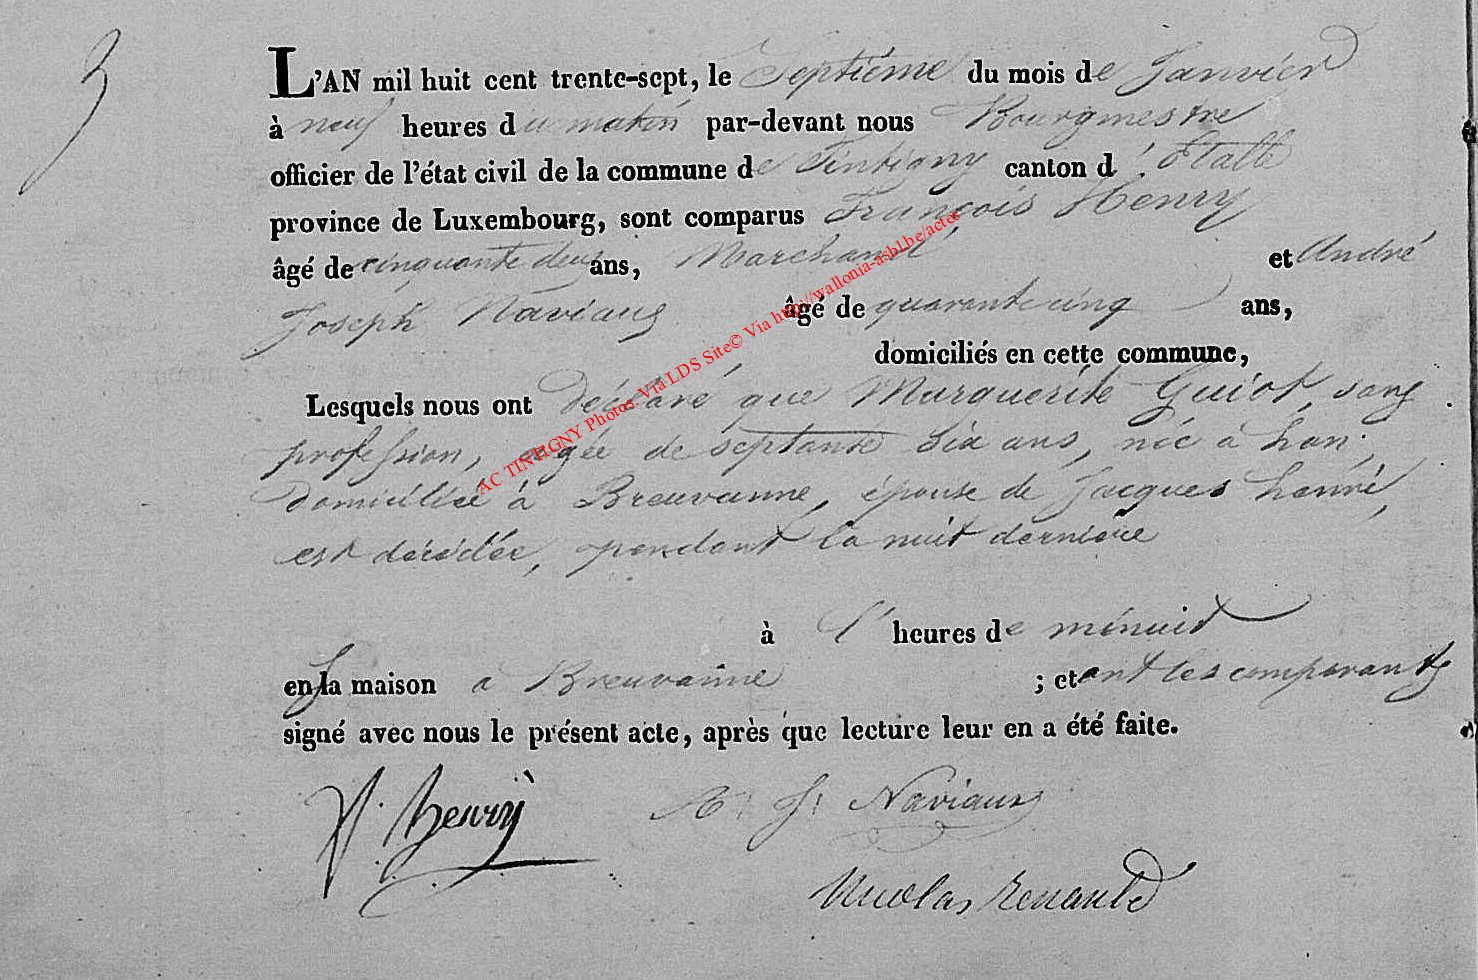 3
L'AN mil huit cent trente-sept, le Septième du mois de Janvier
à neuf heures du matin par-devant nous Bourgmestre
officier de l'état civil de la commune de Tintigny canton d'Etalle
province de Luxembourg, sont comparus François Henry
âgé de cinquante deux ans, Marchand et André
Joseph Naviaux âgé de quarante cinq ans,
domiciliés en cette commune,
Lesquels nous ont déclaré que Marguerite Guiot, sans
profession, agée de septante six ans, née à han,
domiciliée à Breuvanne, épouse de Jacques henri,
est décédée, pendant la nuit dernière
à l' heures de minuit
en sa maison a Breuvanne ; et ont les comparants
signé avec nous le présent acte, après que lecture leur en a été faite.
f. henry A: J: Naviaux
Nicolas Renauld
AC TINTIGNY Photos Via LDS Site© Via http://wallonia-asbl.be/actes